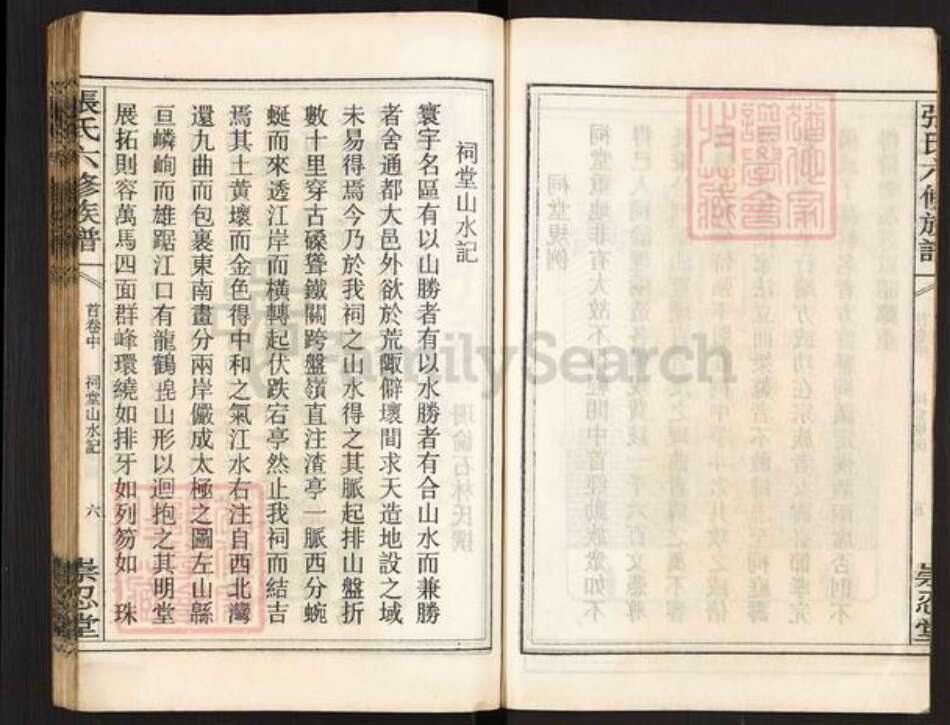 祠堂山水記
寰宇名區有以山勝者有以水勝者有合山水而兼勝
者舍通都大邑外欲於荒陬僻壤間求天造地設之域
未易得焉今乃於我祠之山水得之其脈起排山盤折
數十里穿古磉聳鐵關跨盤嶺直注渣亭一脈西分蜿
蜒而來透江岸而橫轉起伏跌宕亭然止我祠而結吉
焉其土黃壤而金色得中和之氣江水右注自西北灣
還九曲而包裹東南畫分兩岸儼成太極之圖左山緜
亘嶙峋而雄踞江口有龍鶴山形以迴抱之其明堂
展拓則容萬馬四面群峰環繞如排牙如列笏如 珠
張氏六修族譜
首卷中
祠堂山水記
六
崇忍堂
張氏六修族譜
崇忍堂
FamilySearch